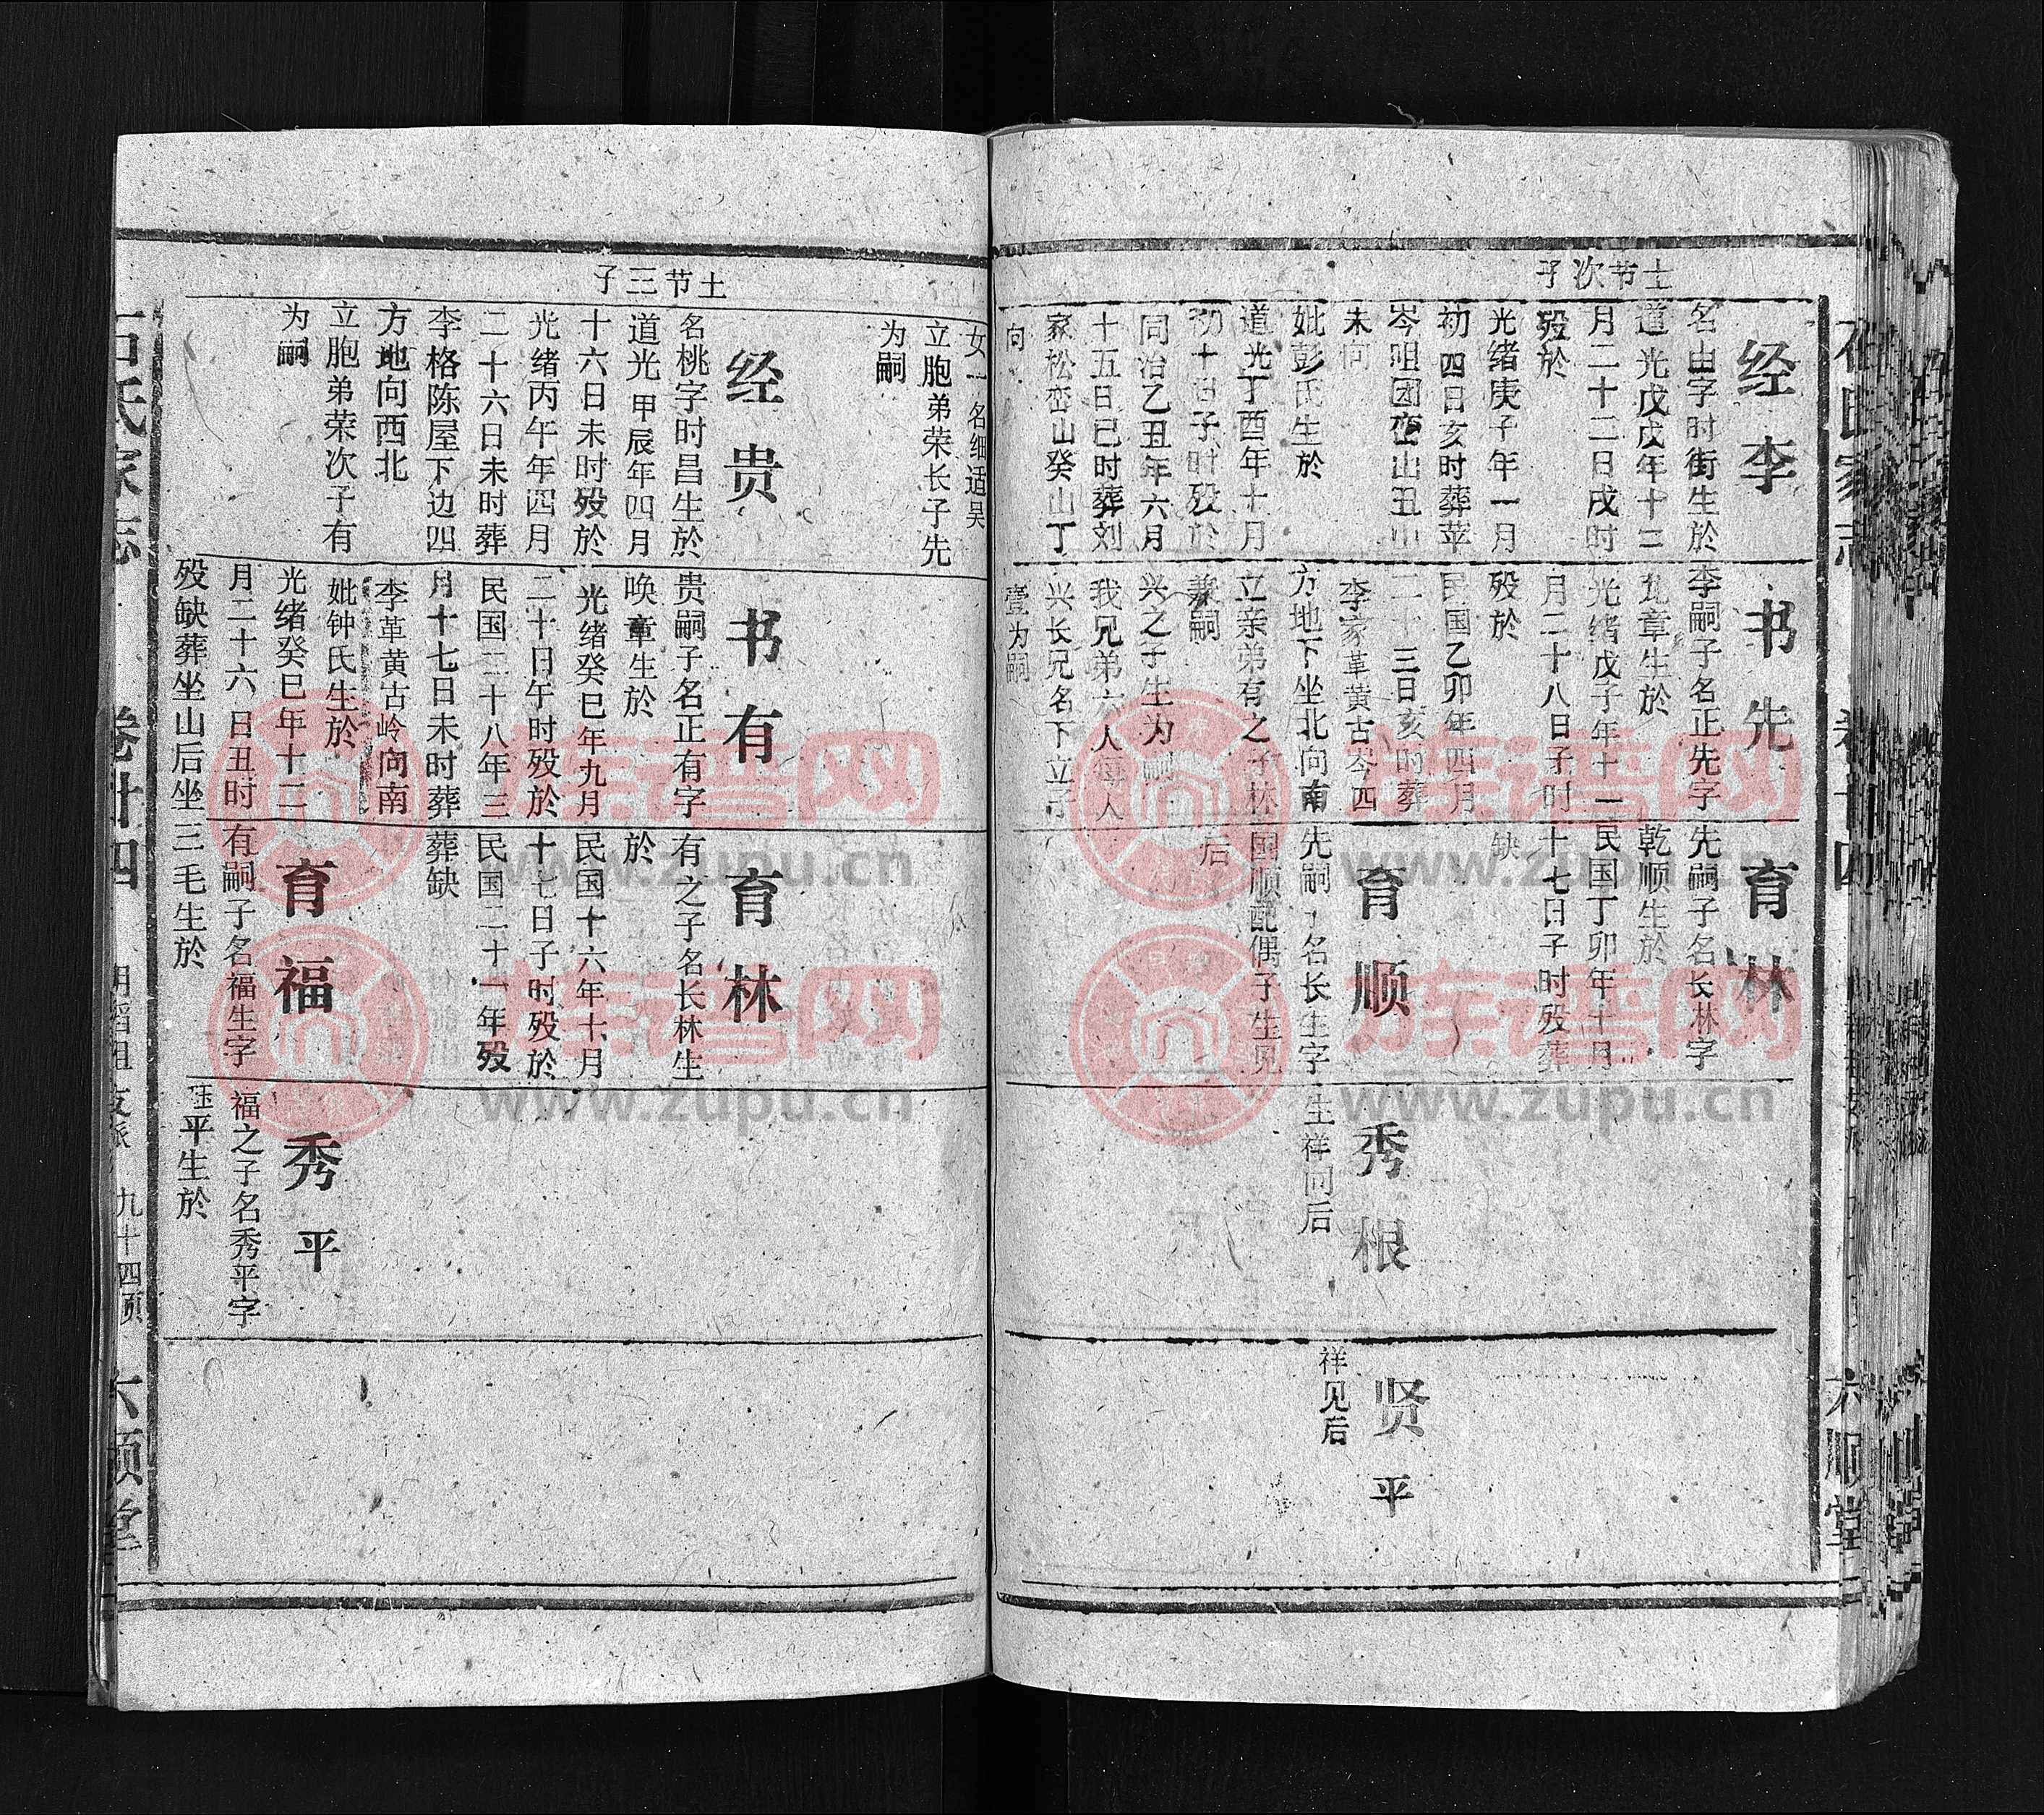 士节次子
经李
名由字时街生於
道光戊戌年十二
月二十二日戌时
殁於
光绪庚子年一月
初四日亥时葬苹
岑咀团峦山丑山
未向
妣彭氏生於
道光丁酉年十月
初十日子时殁於
同治乙丑年六月
十五日巳时葬刘
家松峦山癸山丁
向
书先
李嗣子名正先字
章生於
光绪戊子年十一
月二十八日子时
殁於
民国乙卯年四月
二十三日亥时葬
李家革黄古岑四
方地下坐北向南
立亲弟有之子林
兼嗣
兴之子生为嗣
我兄弟六人每人
兴长兄名下立子
壹为嗣
育林
先嗣子名长林字
乾顺生於
民国丁卯年十月
十七日子时殁葬
缺
育顺
先嗣子名长生字
国顺配偶子生见
后
秀根
生祥同后
贤平
祥见后
六顺堂
土节三子
女一名细适吴
立胞弟荣长子先
为嗣
经贵
名桃字时昌生於
道光甲辰年四月
十六日未时殁於
光绪丙午年四月
二十六日未时葬
李格陈屋下边四
方地向西北
立胞弟荣次子有
为嗣
书有
贵嗣子名正有字
唤章生於
光绪癸巳年九月
二十日午时殁於
民国三十八年三
月十七日未时葬
李革黄古岭向南
妣钟氏生於
光绪癸巳年十二
月二十六日丑时
殁缺葬坐山后坐三毛生於
育林
有之子名长林生
於
民国十六年十月
十七日子时殁於
民国二十一年殁
葬缺
育福
有嗣子名福生字
秀平
福之子名秀平字
珏平生於
石氏家志 卷廿四 明韬祖支派 九十四页 六顺堂
族谱网
www.zupu.cn
族谱网
www.zupu.cn
族谱网
www.zupu.cn
族谱网
www.zupu.cn